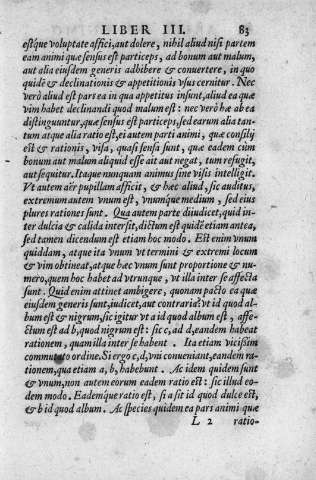 LIBER III. 83
estque voluptate affici, aut dolere, nihil aliud nisi partem
eam animi quæ sensus est particeps, ad bonum aut malum,
aut alia eiusdem generis adhibere & conuertere, in quo
quidẽ & declinationis & appetitionis vsus cernitur. Nec
verò aliud est pars ea in qua appetitus insunt, aliud ea quæ
vim habet declinandi quod malum est: nec verò hæ ab ea
distinguuntur, quæ sensus est particeps, sed earum alia tan-
tum atque alia ratio est, ei autem parti animi, quæ consilij
est & rationis, visa, quasi sensa sunt, quæ eadem cùm
bonum aut malum aliquid esse ait aut negat, tum refugit,
aut sequitur. Itaque nunquam animus sine visis intelligit.
Vt autem aër pupillam afficit, & hæc aliud, sic auditus,
extremum autem vnum est, vnumque medium, sed eius
plures rationes sunt. Qua autem parte diiudicet, quid in-
ter dulcia & calida intersit, dictum est quidẽ etiam antea,
sed tamen dicendum est etiam hoc modo. Est enim vnum
quiddam, atque ita vnum vt termini & extremi locum
& vim obtineat, atque hæc vnum sunt proportione & nu-
mero, quem hoc habet ad vtrunque, vt illa inter se affecta
sunt. Quid enim attinet ambigere, quonam pacto ea quæ
eiusdem generis sunt, iudicet, aut contraria? vt id quod al-
bum est & nigrum, sic igitur vt a id quod album est, affe-
ctum est ad b, quod nigrum est: sic c, ad d, eandem habeat
rationem, quam illa inter se habent. Ita etiam vicißim
commutato ordine. Si ergo c, d, vni conueniant, eandem ra-
tionem, qua etiam a, b, habebunt. Ac idem quidem sunt
& vnum, non autem eorum eadem ratio est: sic illud eo-
dem modo. Eademque ratio est, si a sit id quod dulce est,
& b id quod album. Ac species quidem ea pars animi quæ
L 2 ratio-